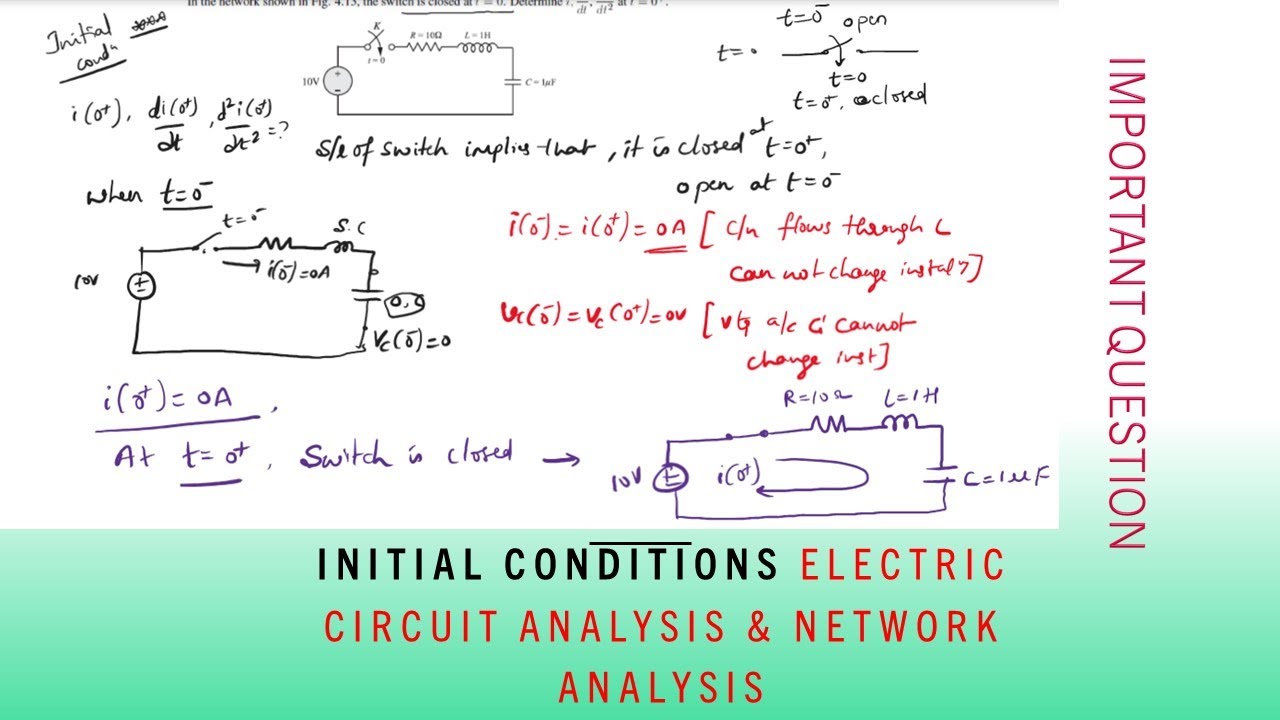 In the network shown in Fig. 4.15, the switch is closed at t = 0. Determine i, di/dt, d²i/dt² at t = 0⁺.
Initial
condⁿ
K
t=0
R = 10Ω
L = 1H
10V
C = 1μF
t=0⁻ open
t=0
t=0⁺, closed
i(0⁺), di(0⁺)/dt, d²i(0⁺)/dt² =?
s/e of switch implies that, it is closed at t=0⁺,
open at t=0⁻
when t=0⁻
t=0⁻
S.C
10V
i(0⁻)=0A
Vc(0⁻)=0
i(0⁻) = i(0⁺) = 0A [ c/n flows through L
can not change instaly]
Vc(0⁻) = Vc(0⁺) = 0V [ vtg a/c C cannot
change inst]
i(0⁺) = 0A,
At t=0⁺, Switch is closed →
R=10Ω
L=1H
10V
i(0⁺)
C=1μF
IMPORTANT QUESTION
INITIAL CONDITIONS ELECTRIC
CIRCUIT ANALYSIS & NETWORK
ANALYSIS